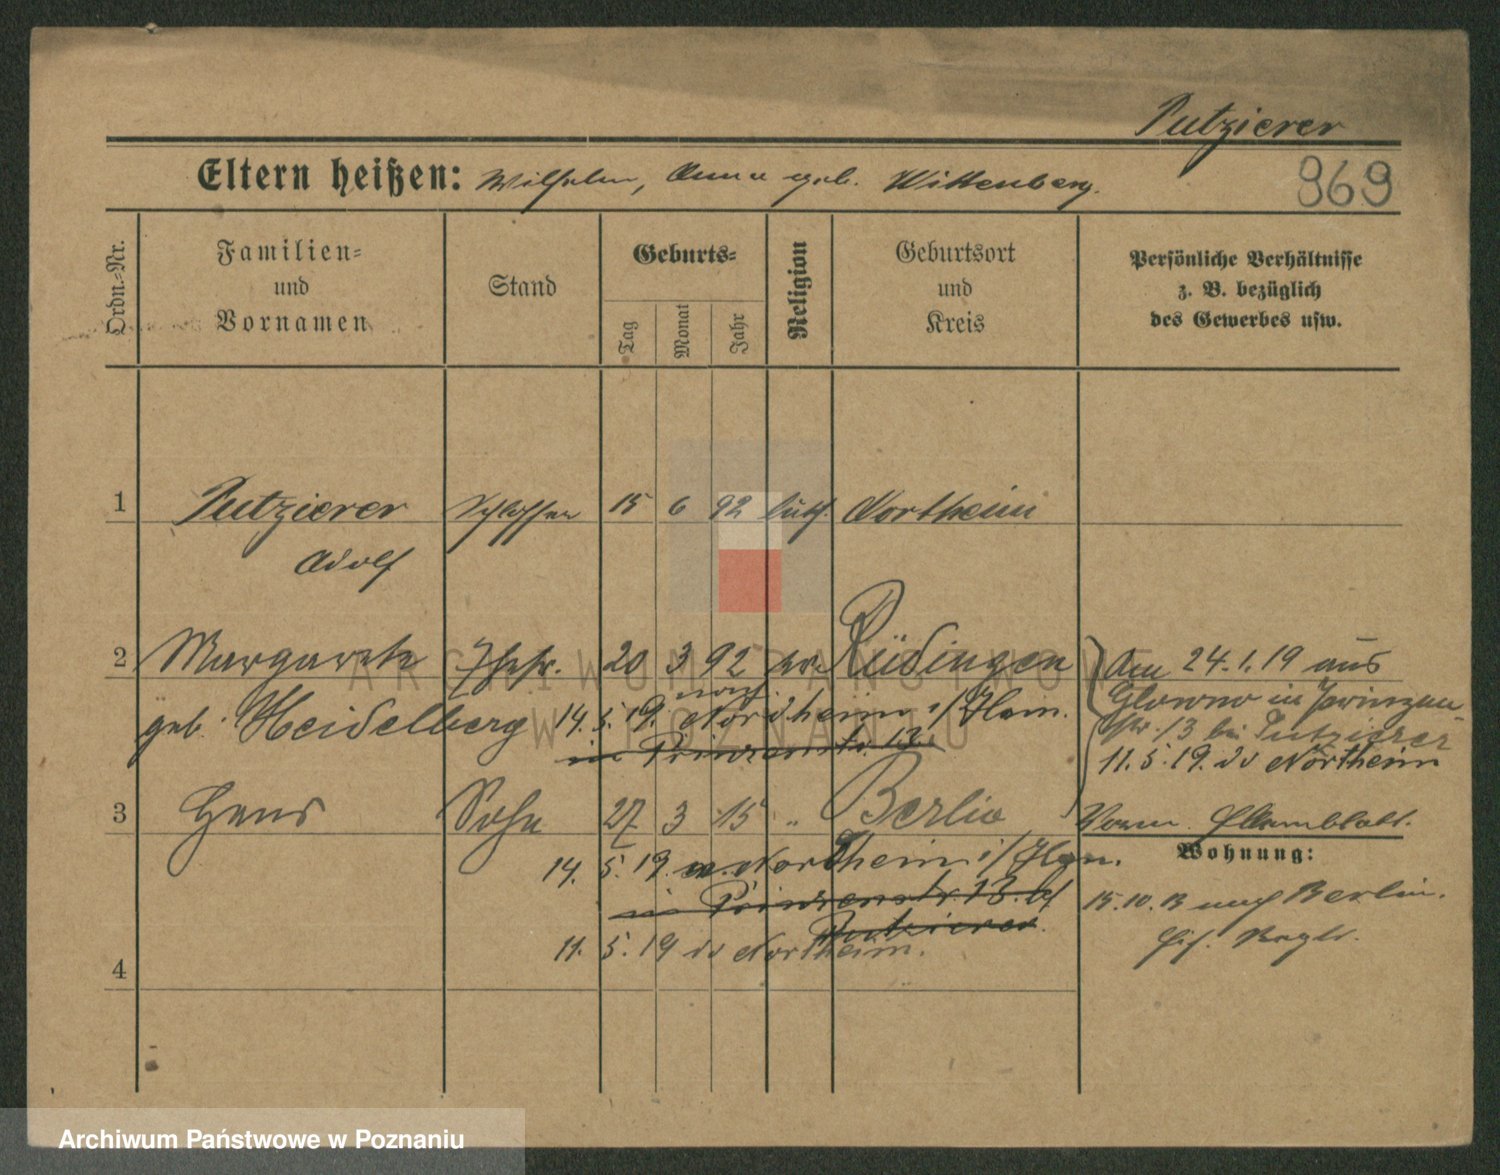 Putzierer
Eltern heißen: Wilhelm, Anna geb. Wittenberg.
969
Ordn.-Nr.
Familien-
und
Vornamen
Stand
Geburts-
Tag
Monat
Jahr
Religion
Geburtsort
und
Kreis
Persönliche Verhältnisse
z. B. bezüglich
des Gewerbes usw.
1 Putzierer Schlosser 15 6 92 luth. Northeim
Adolf
2 Margarete Ehefr. 20 3 92 Rüdingen
geb. Heidelberg
14. 5. 19. nach Nordheim i/Han.
in Prinzenstr. 13.
Am 24.1.19 aus
Glowno in Prinzen-
str. 13 bei Putzierer
11. 5. 19. do Northeim
3 Hans Sohn 27 3 15 " Berlin
14. 5. 19. n. Nordheim i/Han.
in Prinzenstr. 13. bei
Putzierer.
11. 5. 19 do Northeim.
4
Vorm. Elternblatt.
Wohnung:
15.10.13 nach Berlin.
ARCHIWUM PAŃSTWOWE
W POZNANIU
Archiwum Państwowe w Poznaniu